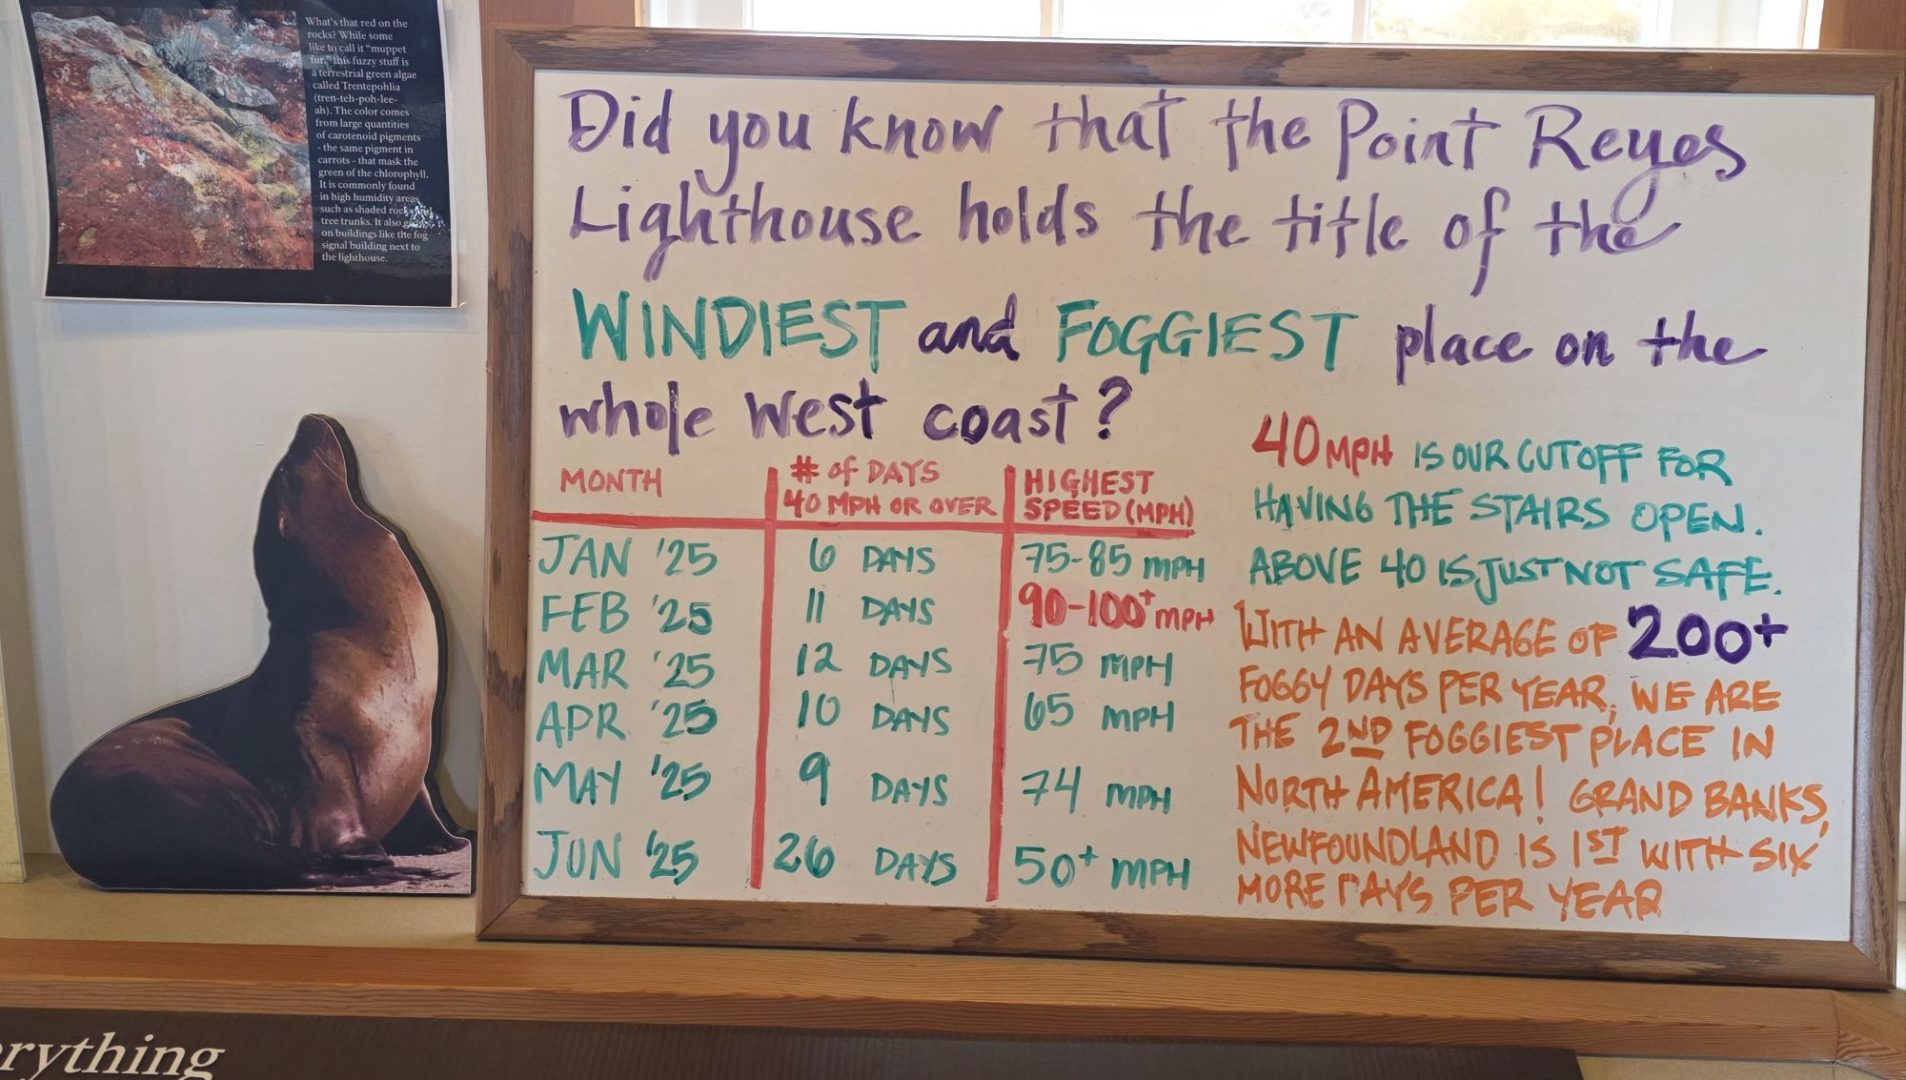 What's that red on the
rocks? While some
like to call it "muppet
fur," this fuzzy stuff is
a terrestrial green algae
called Trentepohlia
(tren-teh-poh-lee-
ah). The color comes
from large quantities
of carotenoid pigments
- the same pigment in
carrots - that mask the
green of the chlorophyll.
It is commonly found
in high humidity areas
such as shaded rocks and
tree trunks. It also grows
on buildings like the fog
signal building next to
the lighthouse.
Did you know that the Point Reyes
Lighthouse holds the title of the
WINDIEST and FOGGIEST place on the
whole West coast?
MONTH # of DAYS 40 MPH OR OVER HIGHEST SPEED (MPH)
JAN '25 6 DAYS 75-85 MPH
FEB '25 11 DAYS 90-100+ MPH
MAR '25 12 DAYS 75 MPH
APR '25 10 DAYS 65 MPH
MAY '25 9 DAYS 74 MPH
JUN '25 26 DAYS 50+ MPH
40 MPH IS OUR CUTOFF FOR
HAVING THE STAIRS OPEN.
ABOVE 40 IS JUST NOT SAFE.
WITH AN AVERAGE OF 200+
FOGGY DAYS PER YEAR, WE ARE
THE 2ND FOGGIEST PLACE IN
NORTH AMERICA! GRAND BANKS,
NEWFOUNDLAND IS 1ST WITH SIX
MORE DAYS PER YEAR
erything